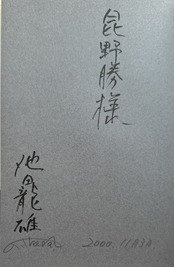 昆野勝様
池田龍雄
2000.11月3日